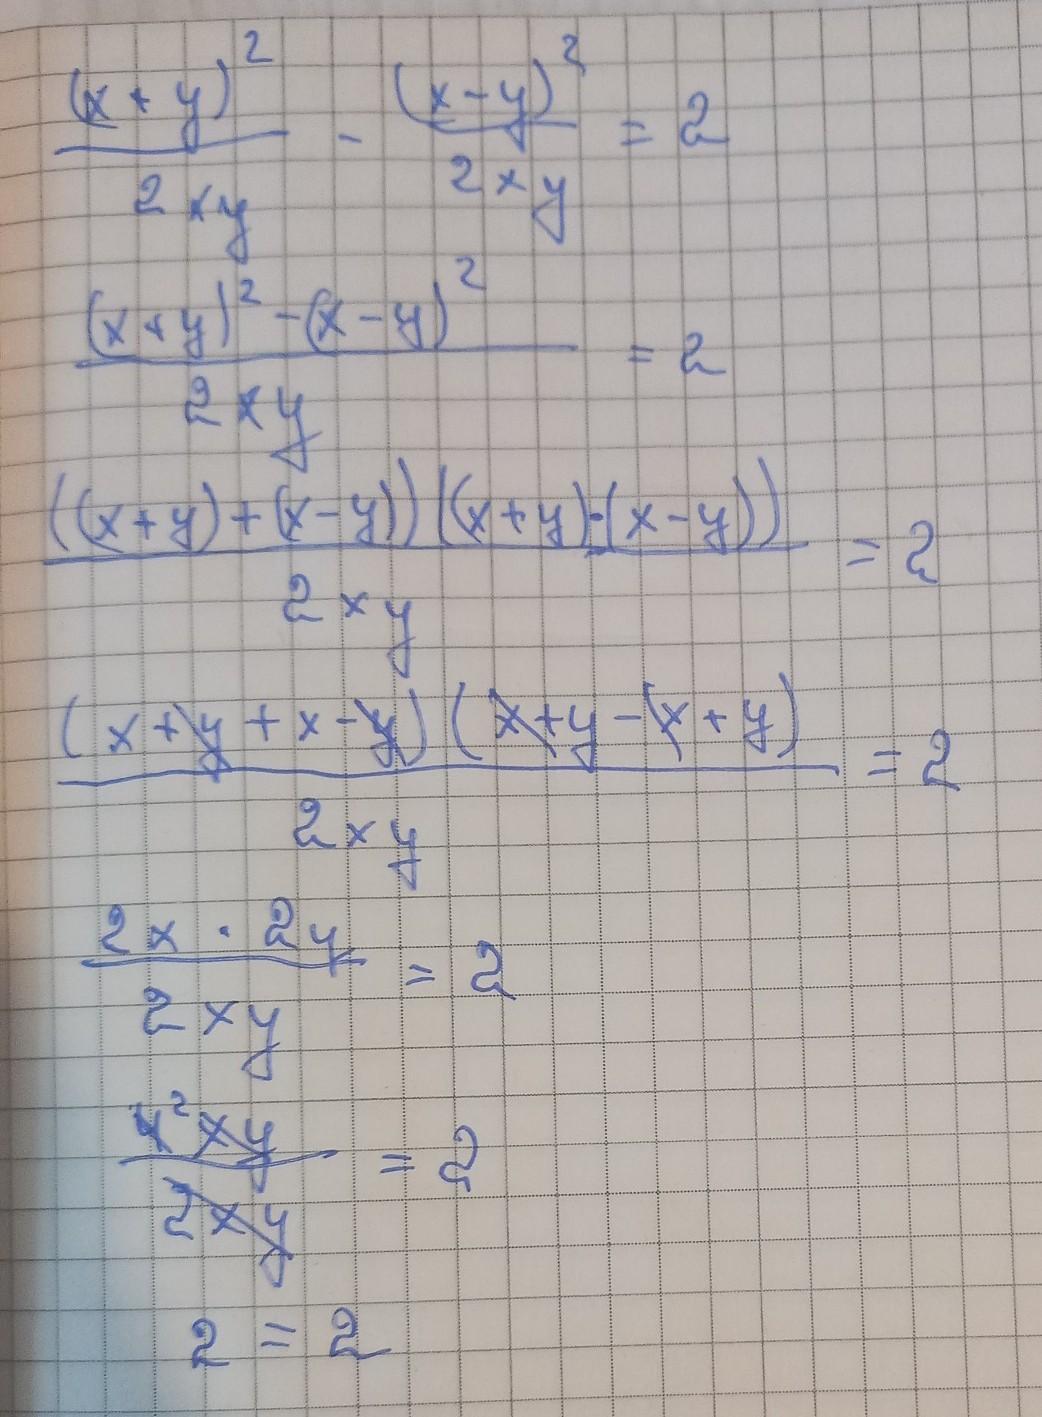 (x + y)² / 2xy - (x - y)² / 2xy = 2
(x + y)² - (x - y)² / 2xy = 2
((x + y) + (x - y)) ((x + y) - (x - y)) / 2xy = 2
(x + y + x - y) (x + y - x + y) / 2xy = 2
2x · 2y / 2xy = 2
4² xy / 2xy = 2
2 = 2